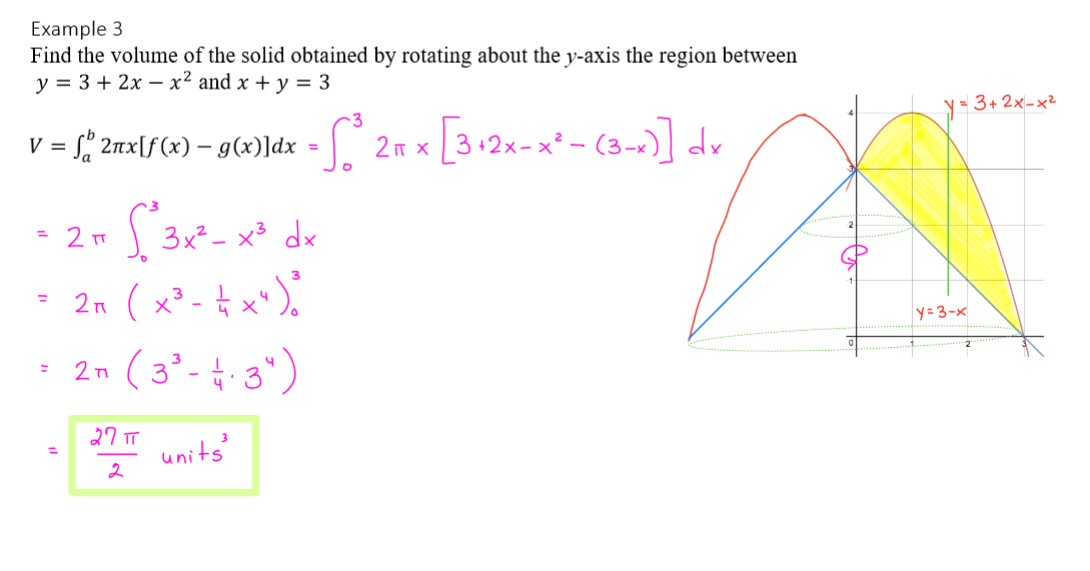 Example 3
Find the volume of the solid obtained by rotating about the y-axis the region between
y = 3 + 2x − x² and x + y = 3
V = ∫ₐᵇ 2πx[f(x) − g(x)]dx = ∫₀³ 2π x [3+2x−x² − (3−x)] dx
= 2π ∫₀³ 3x² − x³ dx
= 2π ( x³ − 1/4 x⁴ )₀³
= 2π ( 3³ − 1/4 · 3⁴ )
= 27π/2 units³
y = 3+2x−x²
4
3
2
1
y=3-x
0
1
2
3